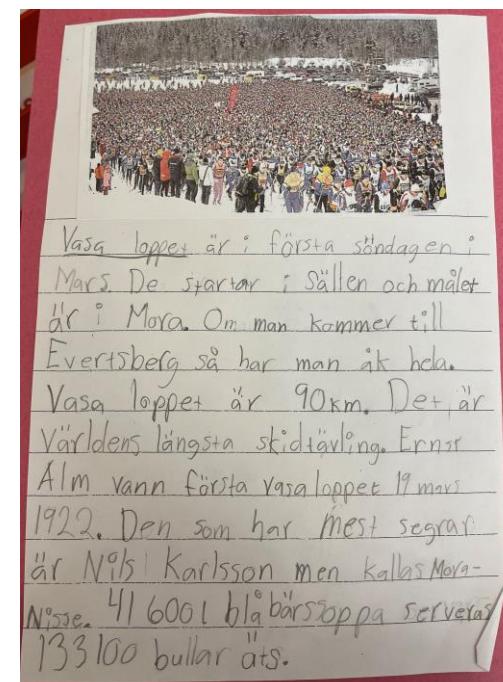 Vasa loppet är i första söndagen i
Mars. De startar i Sällen och målet
är i Mora. Om man kommer till
Evertsberg så har man åk hela.
Vasa loppet är 90km. Det är
Världens längsta skidtävling. Ernst
Alm vann första vasaloppet 19 mars
1922. Den som har mest segrar
är Nils Karlsson men kallas Mora-
Nisse. 41 600 l blåbärssoppa serveras
133100 bullar äts.